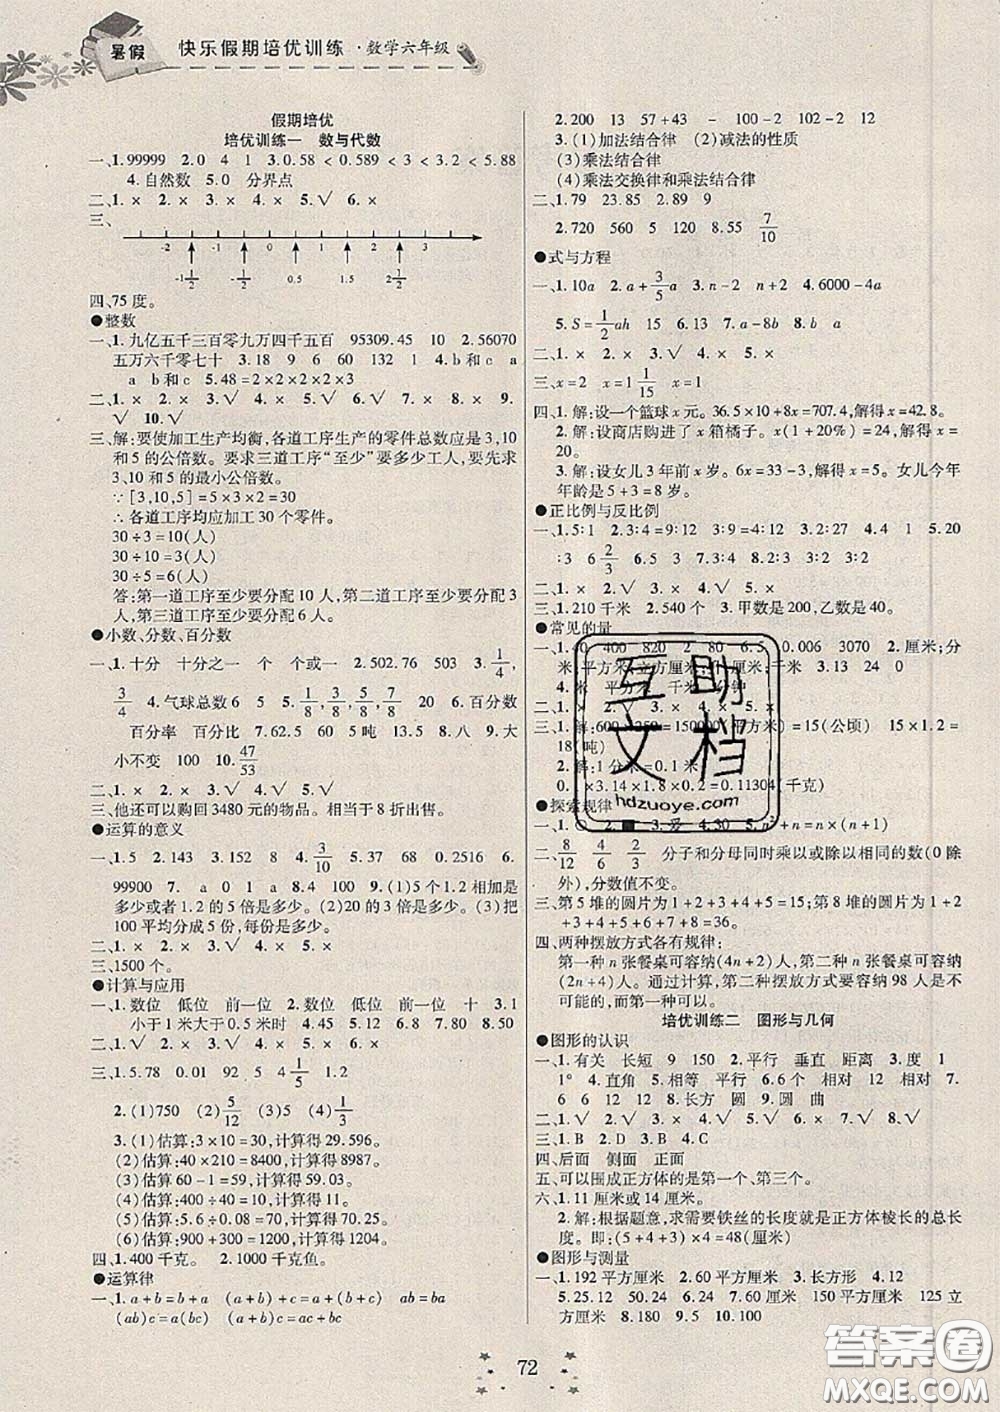 暑假
快乐假期培优训练·数学六年级
假期培优
培优训练一 数与代数
一、1.99999 2.0 4 1 3.0.58<0.589<3<3.2<5.88
4.自然数 5.0 分界点
二、1.× 2.× 3.× 4.× 5.√ 6.×
三、
-2 -1 0 1 2 3
-1 1/2 0.5 1.5 2 1/2
四、75度。
●整数
一、1.九亿五千三百零九万四千五百 95309.45 10 2.56070
五万六千零七十 3.18 9 6 60 132 1 4.b和c a
a b和c 5.48=2×2×2×2×3
二、1.× 2.× 3.√ 4.√ 5.√ 6.√ 7.× 8.× 9.
√ 10.√
三、解:要使加工生产均衡,各道工序生产的零件总数应是3,10
和5的公倍数。要求三道工序“至少”要多少工人,要先求
3,10和5的最小公倍数。
∵[3,10,5]=5×3×2=30
∴各道工序均应加工30个零件。
30÷3=10(人)
30÷10=3(人)
30÷5=6(人)
答:第一道工序至少要分配10人,第二道工序至少要分配3
人,第三道工序至少要分配6人。
●小数、分数、百分数
一、1.十分 十分之一 个 个或一 2.502.76 503 3.1/4
3/4 4.气球总数6 5 1/8 3/8 5/8 7/8 20 6.百分数
百分率 百分比 7.62.5 60 5吨 13.5 8.八 9.大
小不变 100 10.47/53
二、1.× 2.× 3.√ 4.× 5.×
三、他还可以购回3480元的物品。相当于8折出售。
●运算的意义
一、1.5 2.143 3.152 8 4.3/10 5.68 0.2516 6.
99900 7.a 0 1 a 8.4 100 9.(1)5个1.2相加是
多少或者1.2的5倍是多少。(2)20的3倍是多少。(3)把
100平均分成5份,每份是多少。
二、1.× 2.× 3.√ 4.× 5.×
三、1500个。
●计算与应用
一、1.数位 低位 前一位 2.数位 低位 前一位 十 3.1
小于1米大于0.5米时 4.5 5.12 6.13 7.8 8.50
二、1.× 2.√ 3.√ 4.√ 5.×
三、1.5.78 0.01 92 5 4 1/5 1.2
2.(1)750 (2)5/12 (3)5 (4)1/3
3.(1)估算:3×10=30,计算得29.596。
(2)估算:40×210=8400,计算得8987。
(3)估算60-1=59,计算得59.14。
(4)估算:400÷40=10,计算得11。
(5)估算:5.6÷0.08=70,计算得70.25。
(6)估算:900+300=1200,计算得1204。
四、1.400千克。 2.1000千克鱼。
●运算律
一、1.a+b=b+a (a+b)+c=a+(b+c) ab=ba
(ab)c=a(bc) (a+b)c=ac+bc
2.200 13 57+43 - 100-2 100-2 12
3.(1)加法结合律 (2)减法的性质
(3)乘法结合律
(4)乘法交换律和乘法结合律
二、1.79 23.85 2.89 9
2.720 560 5 120 8.55 7/10
●式与方程
一、1.10a 2.a+3/5a 3.n-2 n+2 4.6000-4a
5.S=1/2ah 15 6.13 7.a-8b 8.b a
二、1.× 2.× 3.√ 4.× 5.×
三、x=2 x=1 1/15 x=1
四、1.解:设一个篮球x元。36.5×10+8x=707.4,解得x=42.8。
2.解:设商店购进了x箱橘子。x(1+20%)=24,解得x=
20。
3.解:设女儿3年前x岁。6x=33-3,解得x=5。女儿今年
年龄是5+3=8岁。
●正比例与反比例
一、1.5∶1 2.3∶4=9∶12 3∶9=4∶12 3.2∶27 4.4 1 5.20
∶3 6 2/3 6.5 7.3∶4 8.2∶3 3∶2 3∶2
二、1.× 2.√ 3.× 4.√ 5.×
三、1.210千米 2.540个 3.甲数是200,乙数是40。
●常见的量
一、1.40 400 820 2 80 6.5 0.006 3070 2.厘米;分
米 平方米;立方厘米;升 厘米;千米 3.13 24 0
4.米 平方米 千米 分钟
二、1.× 2.√ 3.× 4.× 5.×
三、1.解:600×250=150000(平方米)=15(公顷) 15×1.2=
18(吨)
2.解:1分米=0.1米
×3.14×1.8×0.2=0.11304(千克)
●探索规律
一、1.○ 2.■ 3.爱 4.30 5.n²+n=n×(n+1)
二、8/12 4/6 2/3 分子和分母同时乘以或除以相同的数(0除
外),分数值不变。
三、第5堆的圆片为1+2+3+4+5=15;第8堆的圆片为1+2+3
+4+5+6+7+8=36。
四、两种摆放方式各有规律:
第一种n张餐桌可容纳(4n+2)人,第二种n张餐桌可容纳
(2n+4)人。通过计算,第二种摆放方式要容纳98人是不
可能的,而第一种可以。
培优训练二 图形与几何
●图形的认识
一、1.有关 长短 9 150 2.平行 垂直 距离 3.度 1
1° 4.直角 5.相等 平行 6.6个 相对 12 相对 7.
6 6 12 12 8.长方 圆 9.圆 曲
二、1.√ 2.√ 3.√ 4.√ 5.√ 6.× 7.√ 8.√
三、1.B 2.D 3.A 4.B 5.C
四、后面 侧面 正面
五、可以围成正方体的是第一个、第三个。
六、1.11厘米或14厘米。
2.解:根据题意,求需要铁丝的长度就是正方体棱长的总长
度。即:(5+4+3)×4=48(厘米)
●图形与测量
一、1.192平方厘米 2.60平方厘米 3.长方形 4.12
5.25.12 50.24 6.24 7.60厘米 150平方厘米 125立
方厘米 8.180 9.5 10.100
72
互助
文档
hdzuoye.com
答案圈
MXQE.COM